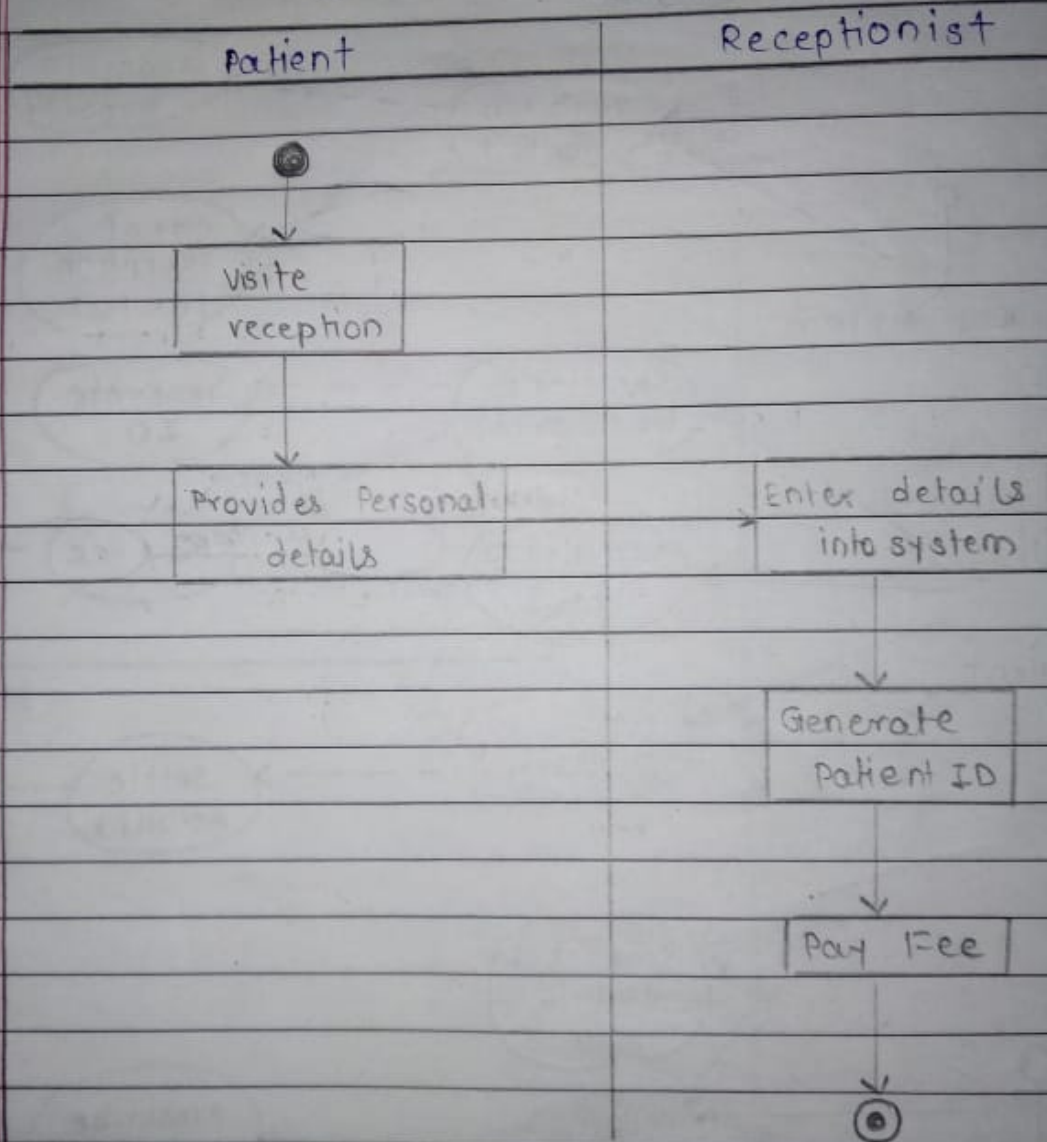 Patient
Receptionist
Visite
reception
Provides Personal
details
Enter details
into system
Generate
Patient ID
Pay Fee